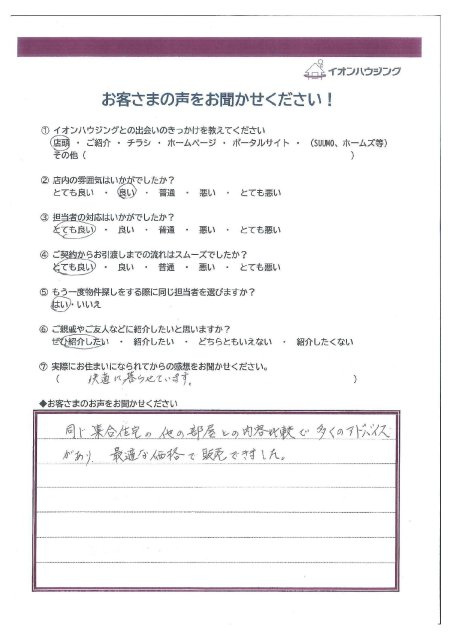 イオンハウジング
お客さまの声をお聞かせください！
① イオンハウジングとの出会いのきっかけを教えてください
店頭 ・ ご紹介 ・ チラシ ・ ホームページ ・ ポータルサイト ・ （SUUMO、ホームズ等）
その他（ ）
② 店内の雰囲気はいかがでしたか？
とても良い ・ 良い ・ 普通 ・ 悪い ・ とても悪い
③ 担当者の対応はいかがでしたか？
とても良い ・ 良い ・ 普通 ・ 悪い ・ とても悪い
④ ご契約からお引渡しまでの流れはスムーズでしたか？
とても良い ・ 良い ・ 普通 ・ 悪い ・ とても悪い
⑤ もう一度物件探しをする際に同じ担当者を選びますか？
はい・いいえ
⑥ ご親戚やご友人などに紹介したいと思いますか？
ぜひ紹介したい ・ 紹介したい ・ どちらともいえない ・ 紹介したくない
⑦ 実際にお住まいになられてからの感想をお聞かせください。
（ 快適に暮らせています。 ）
◆お客さまのお声をお聞かせください
同じ集合住宅の他の部屋との内容比較で多くのアドバイス
があり、最適な価格で販売できました。